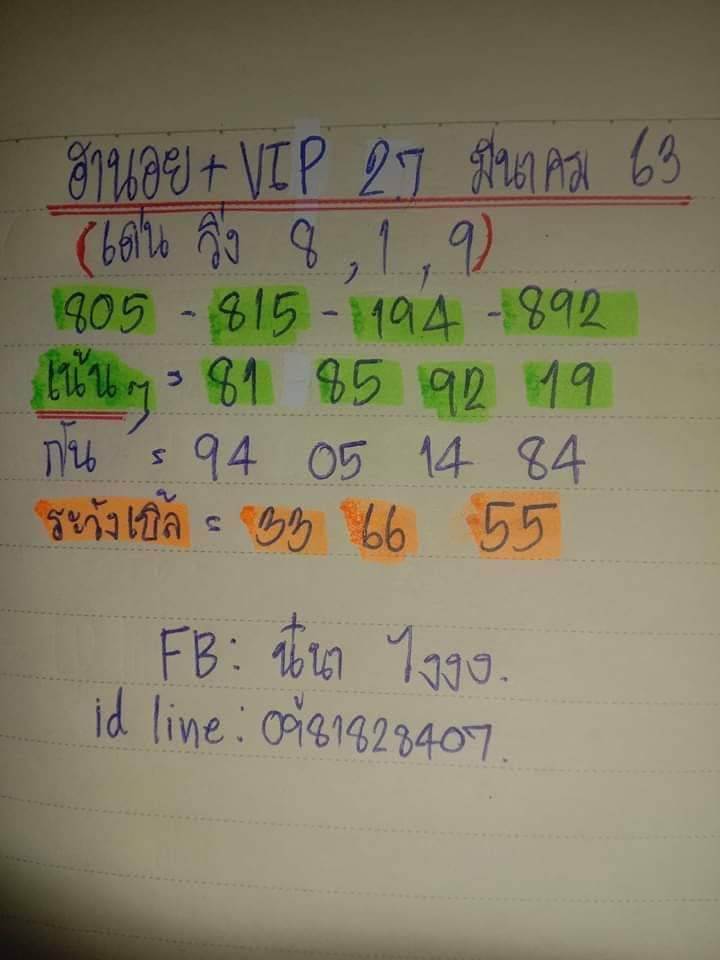 ฮานอย + VIP 27 มีนาคม 63
(เด่น วิ่ง 8 , 1 , 9)
805 - 815 - 194 - 892
เน้นๆ = 81 85 92 19
กัน = 94 05 14 84
ระวังเบิ้ล = 33 66 55
FB: นี่นา ไงงง.
id line: 0981828407.